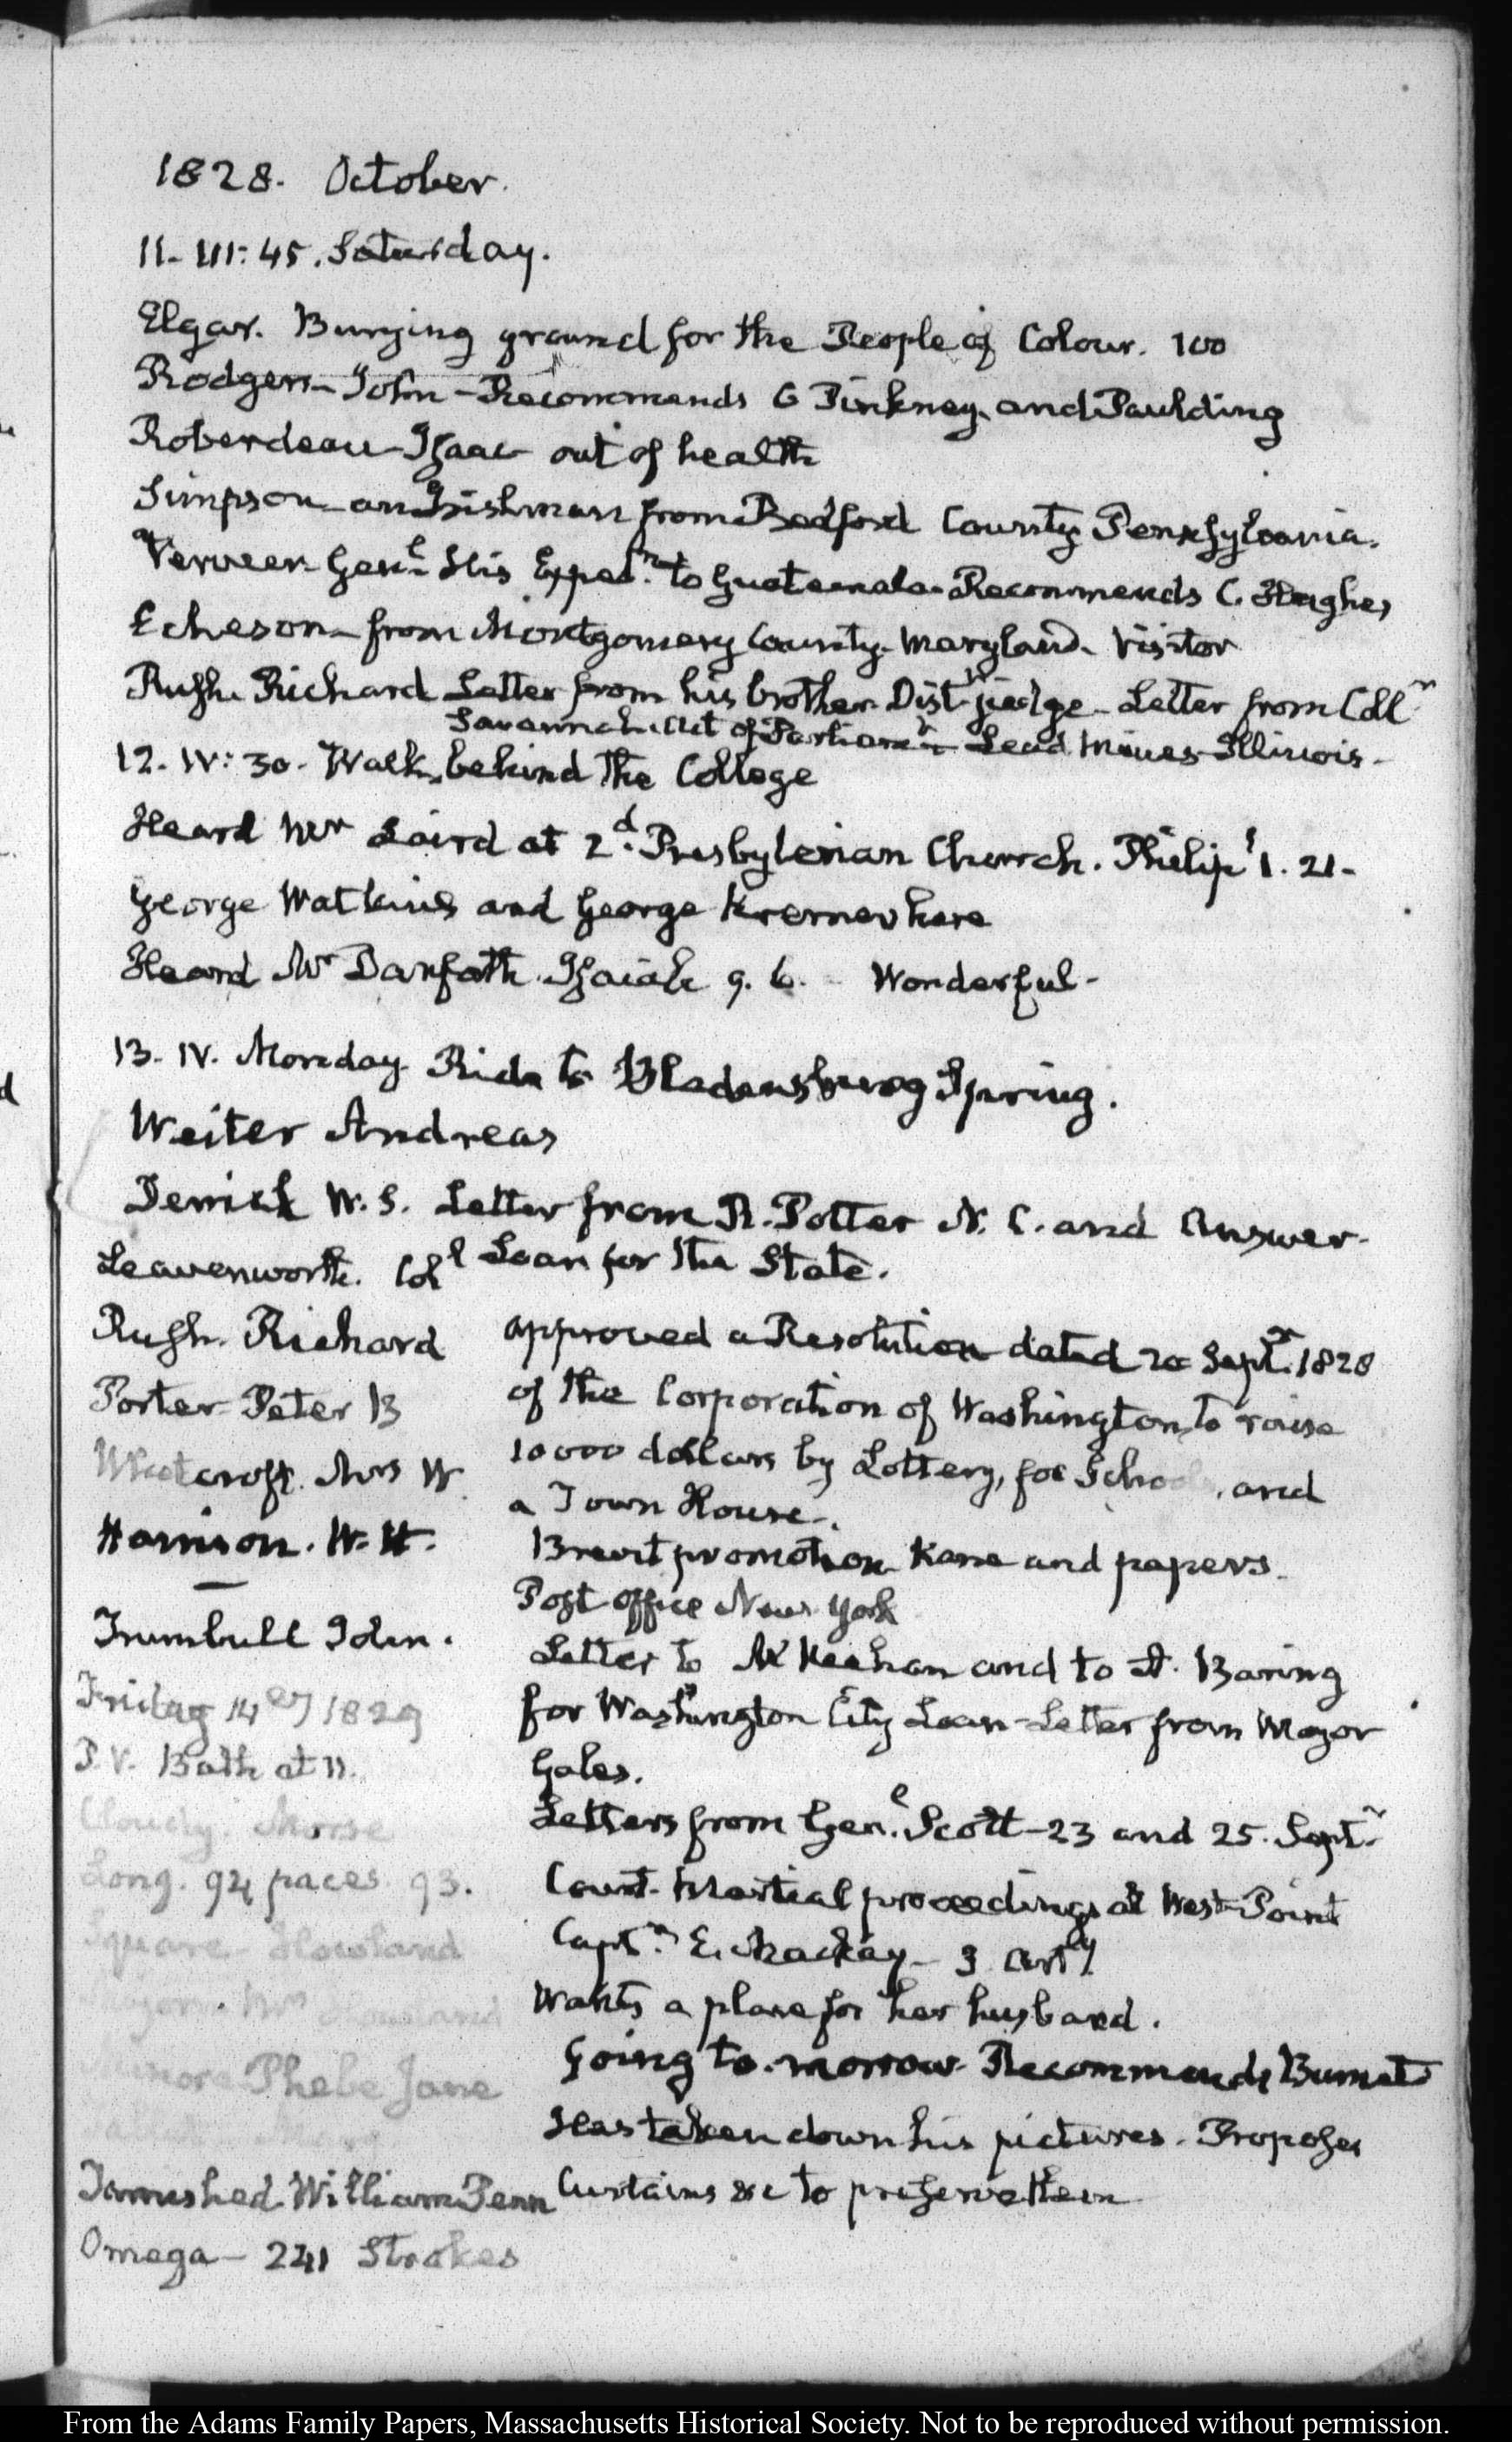 1828. October.
11. III:45. Saturday.
Elgar. Burying ground for the People of Colour. 100
Rodgers John Recommends G Pinkney and Paulding
Roberdeau Isaac out of health
Simpson an Irishman from Bedford County Pennsylvania.
Verveer Genl His Expedn to Guatemala. Recommends C. Hughes
Echeson from Montgomery County Maryland. Visitor
Rush Richard Letter from his brother Distt judge Letter from Collr
Savannah Act of Parliamt Lead Mines Illinois
12. IV:30. Walk behind the College
Heard Mr Laird at 2d Presbyterian Church. Philips 1. 21.
George Watkins and George Kremer here
Heard Mr Danforth Isaiah 9. 6. Wonderful
13. IV. Monday Ride to Bladensburg Spring.
Weiter Andreas
Derrick W. S. Letter from R. Potter N. C. and Answer
Leavenworth. Coll Loan for the State.
Rush Richard approved a Resolution dated 20 Septr 1828
Porter Peter B of the Corporation of Washington to raise
Whetcroft. Mrs W 10000 dollars by Lottery, for Schools, and
a Town House.
Harrison. W. H. Brevet promotion Kane and papers.
Post office New York
Trumbull John. Letter to and to A. Baring
Friday 14 1829 for Washington City Loan Letter from Mayor
P. V. Bath at 11. Gales.
Cloudy. Morse Letters from Genl Scott 23 and 25. Septr
Long. 94 paces 93. Court Martial proceedings at West Point
Square Howland Captn E. Mackay 3 Arty
Major. Mrs Howland Wants a place for her husband.
Phebe Jane Going to morrow Recommends Burnet
Has taken down his pictures. Proposes
Tamished William Penn Curtains &c to preserve them
Omega 241 Strokes
From the Adams Family Papers, Massachusetts Historical Society. Not to be reproduced without permission.